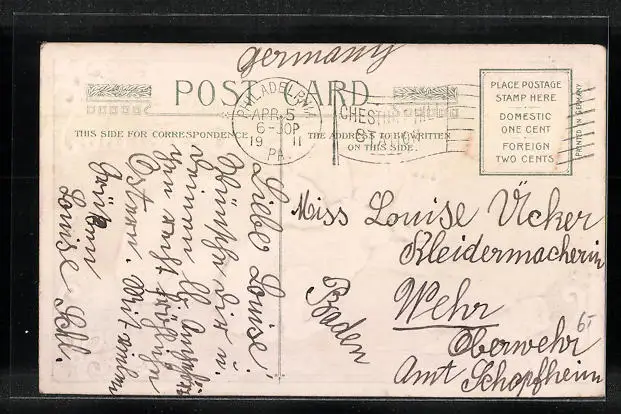 Germany
POST CARD
PHILADELPHIA
APR 5
6-30P
19 11
PA.
CHESTNUT HILL
STATION
THIS SIDE FOR CORRESPONDENCE
THE ADDRESS TO BE WRITTEN
ON THIS SIDE.
PLACE POSTAGE
STAMP HERE
DOMESTIC
ONE CENT
FOREIGN
TWO CENTS
PRINTED IN GERMANY
Liebe Louise!
Wünsche dir u.
deinen lb.
recht fröhliche
Ostern. Mit vielen
Grüßen
Louise Sch.
Miss Louise Ücker
Kleidermacherin
Wehr
Oberwehr
Amt Schopfheim
Baden